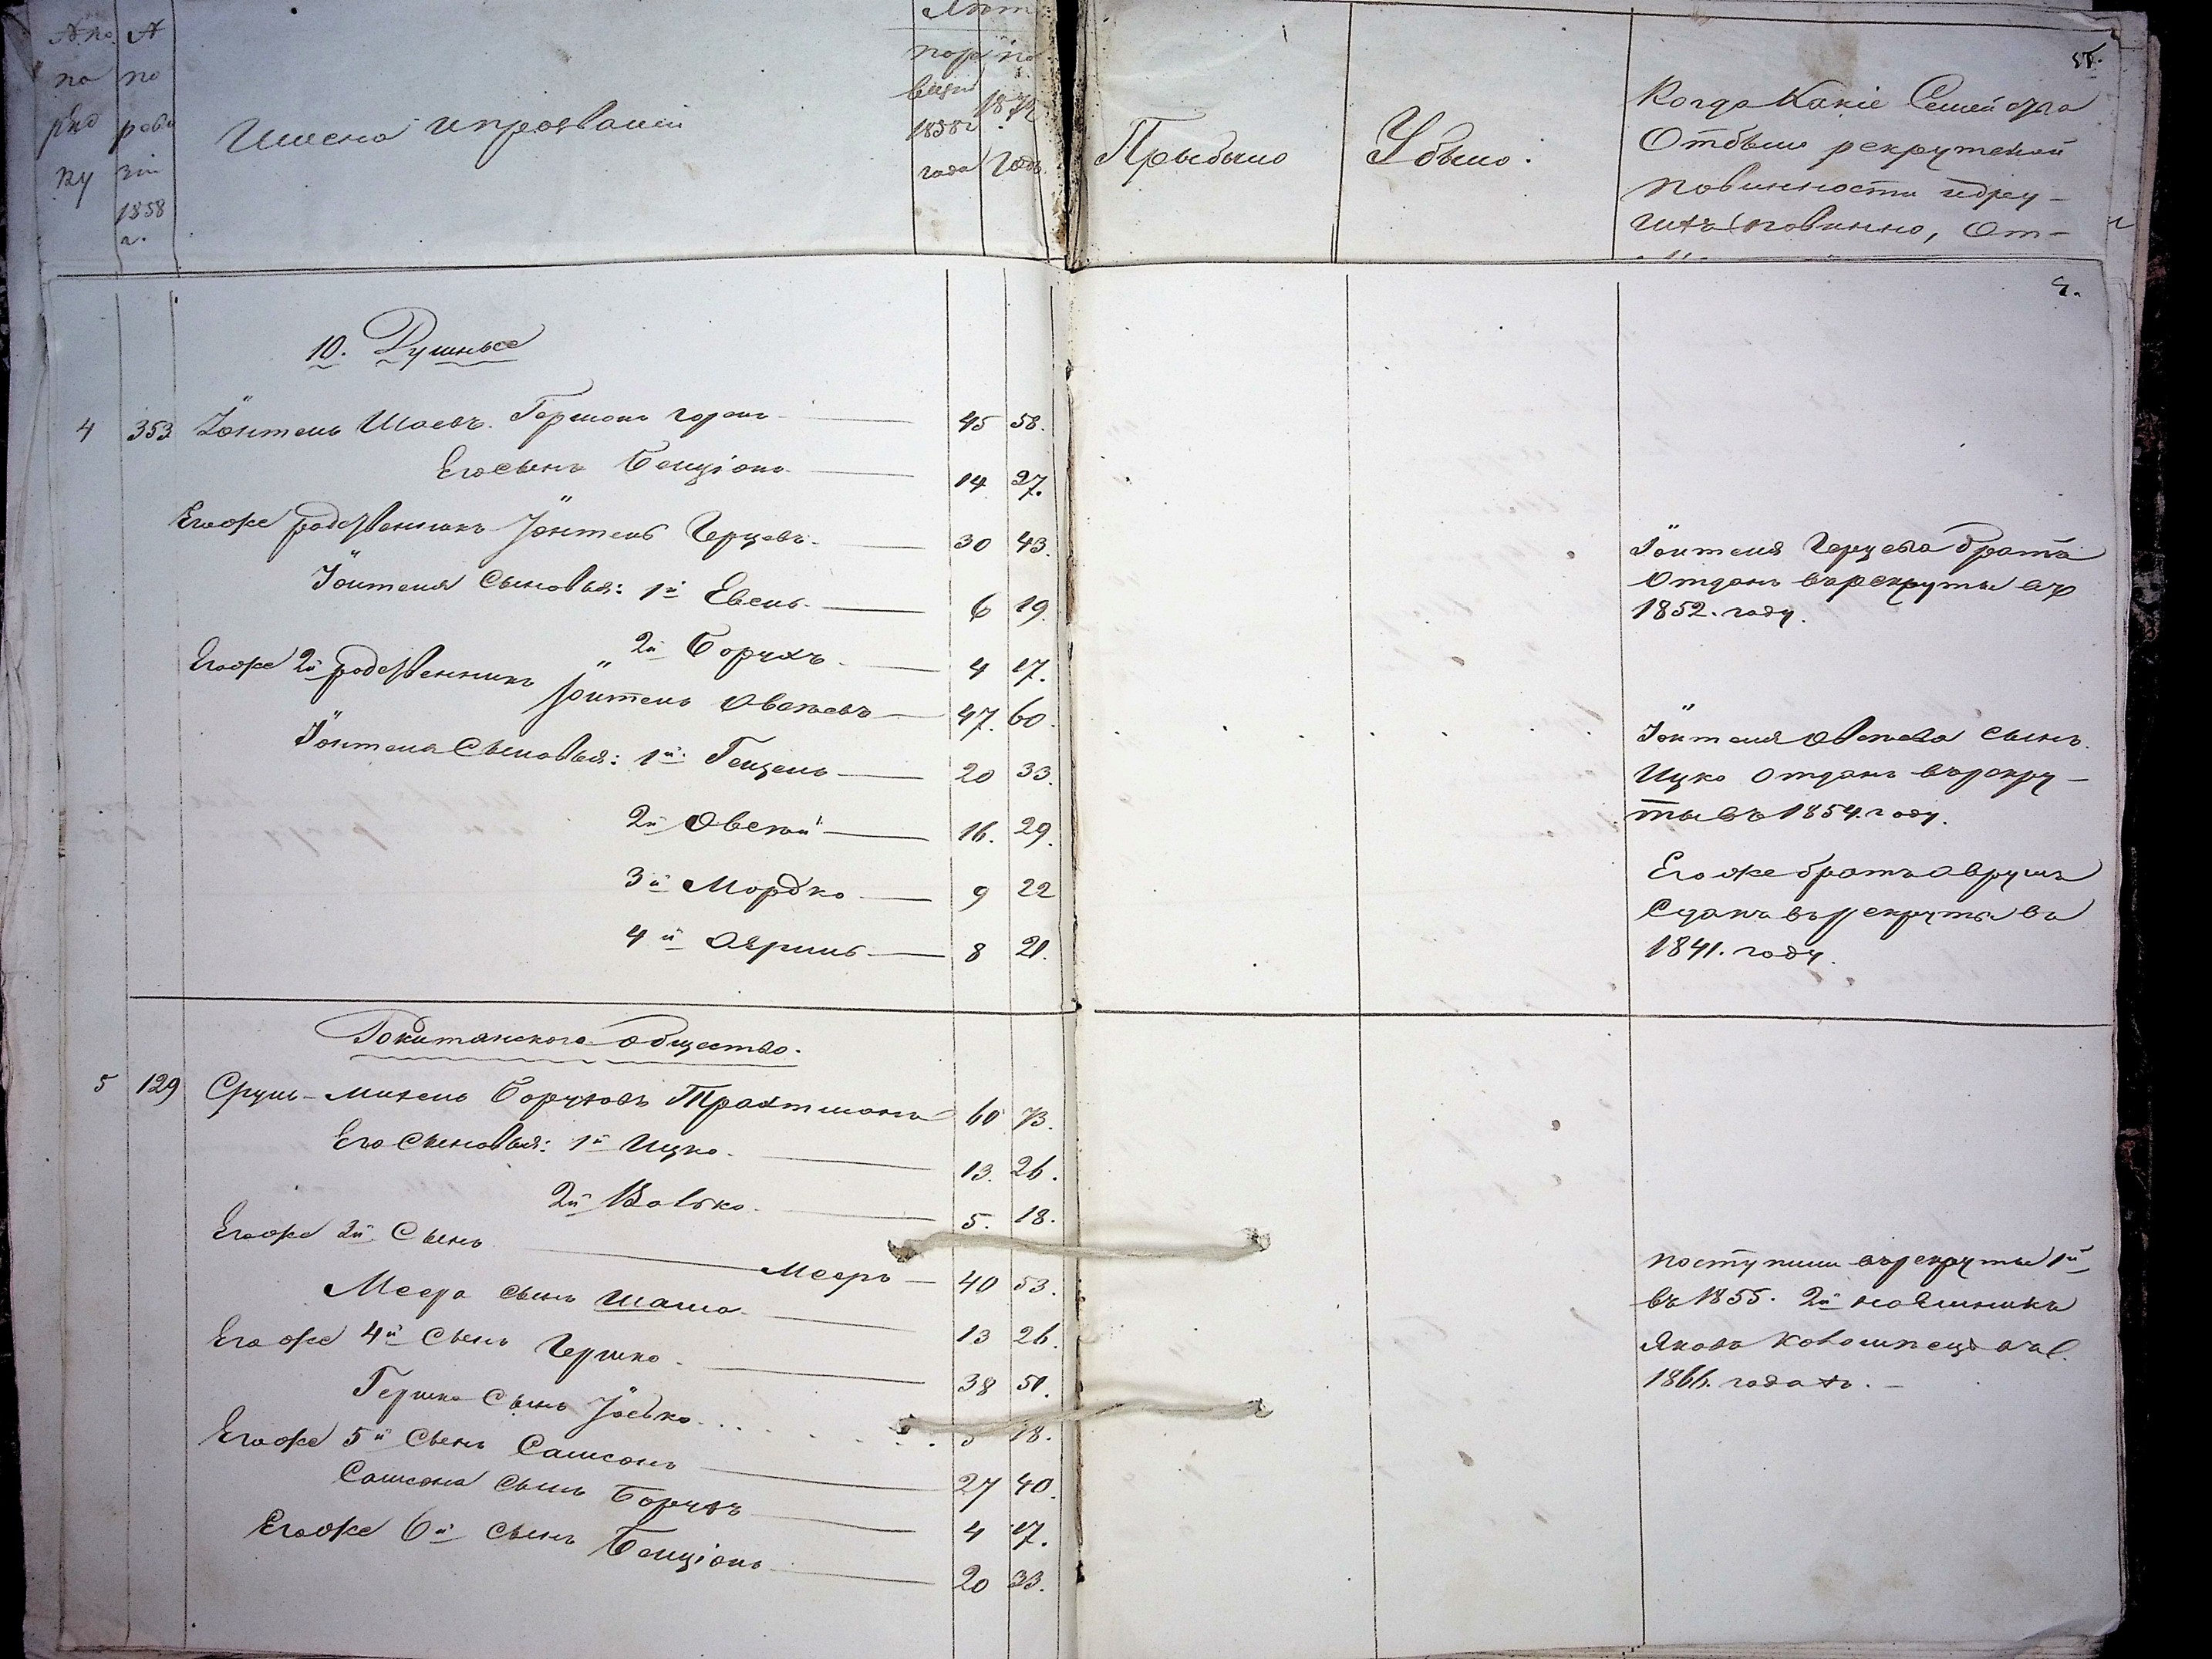 № по
по
ряд
ку
№
по
реви
зіи
1858
г.
Имена и прозваніи
Лѣт
1858
года
1871
Годъ
Прыбыло
Убыло.
Когда Какіе Семейства
Отбыли рекрутской
повинности и друг-
повинно, От-
10. Душные
4 353 Іонтель Шаевъ 45 58.
Его сынъ Бенціонъ 14 27.
Его же родственникъ Іонтель Герцовъ 30 43.
Іонтеля Сыновья: 1й 6 19
2й Борухъ 4 17.
Его же 2й родственникъ Іонтель Овшеевъ 47. 60.
Іонтеля Сыновья: 1й Гецель 20 33.
2й Овсей 16. 29.
3й Мордко 9 22
4й 8 21.
Іонтеля Герцова братъ
Отданъ въ рекруты въ
1852. году.
Іонтеля сынъ
Ицко Отданъ въ рекру-
ты въ 1854. году.
Его же братъ Аврумъ
Сданъ въ рекруты въ
1841. году.
Рокитянского общество.
5 129 Сруль-Михель Боруховъ Трахтманъ 60 73.
Его Сыновья: 1й Ицко 13. 26.
2й Волько 5. 18.
Его же 3й Сынъ Мееръ 40 53.
Меера сынъ Шама 13 26.
Его же 4й Сынъ Гершко 38 51.
Гершка Сынъ Іосько 5 18.
Его же 5й Сынъ Самсонъ 27 40.
Самсона сынъ Борухъ 4 17.
Его же 6й сынъ Бенціонъ 20 33.
поступили въ рекруты 1й
въ 1855. 2й наемникъ
Яковъ
1866. года